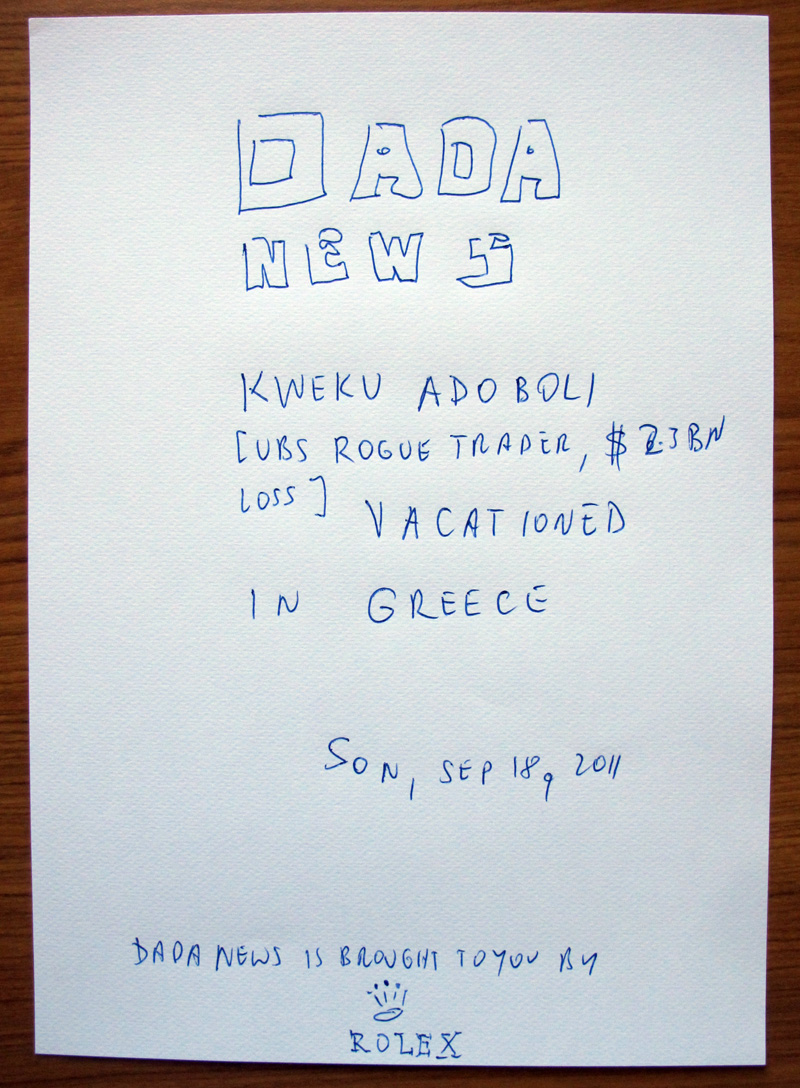 DADA
NEWS
KWEKU ADOBOLI
[UBS ROGUE TRADER, $2.3BN
LOSS] VACATIONED
IN GREECE
SON, SEP 18, 2011
DADA NEWS IS BROUGHT TO YOU BY
ROLEX